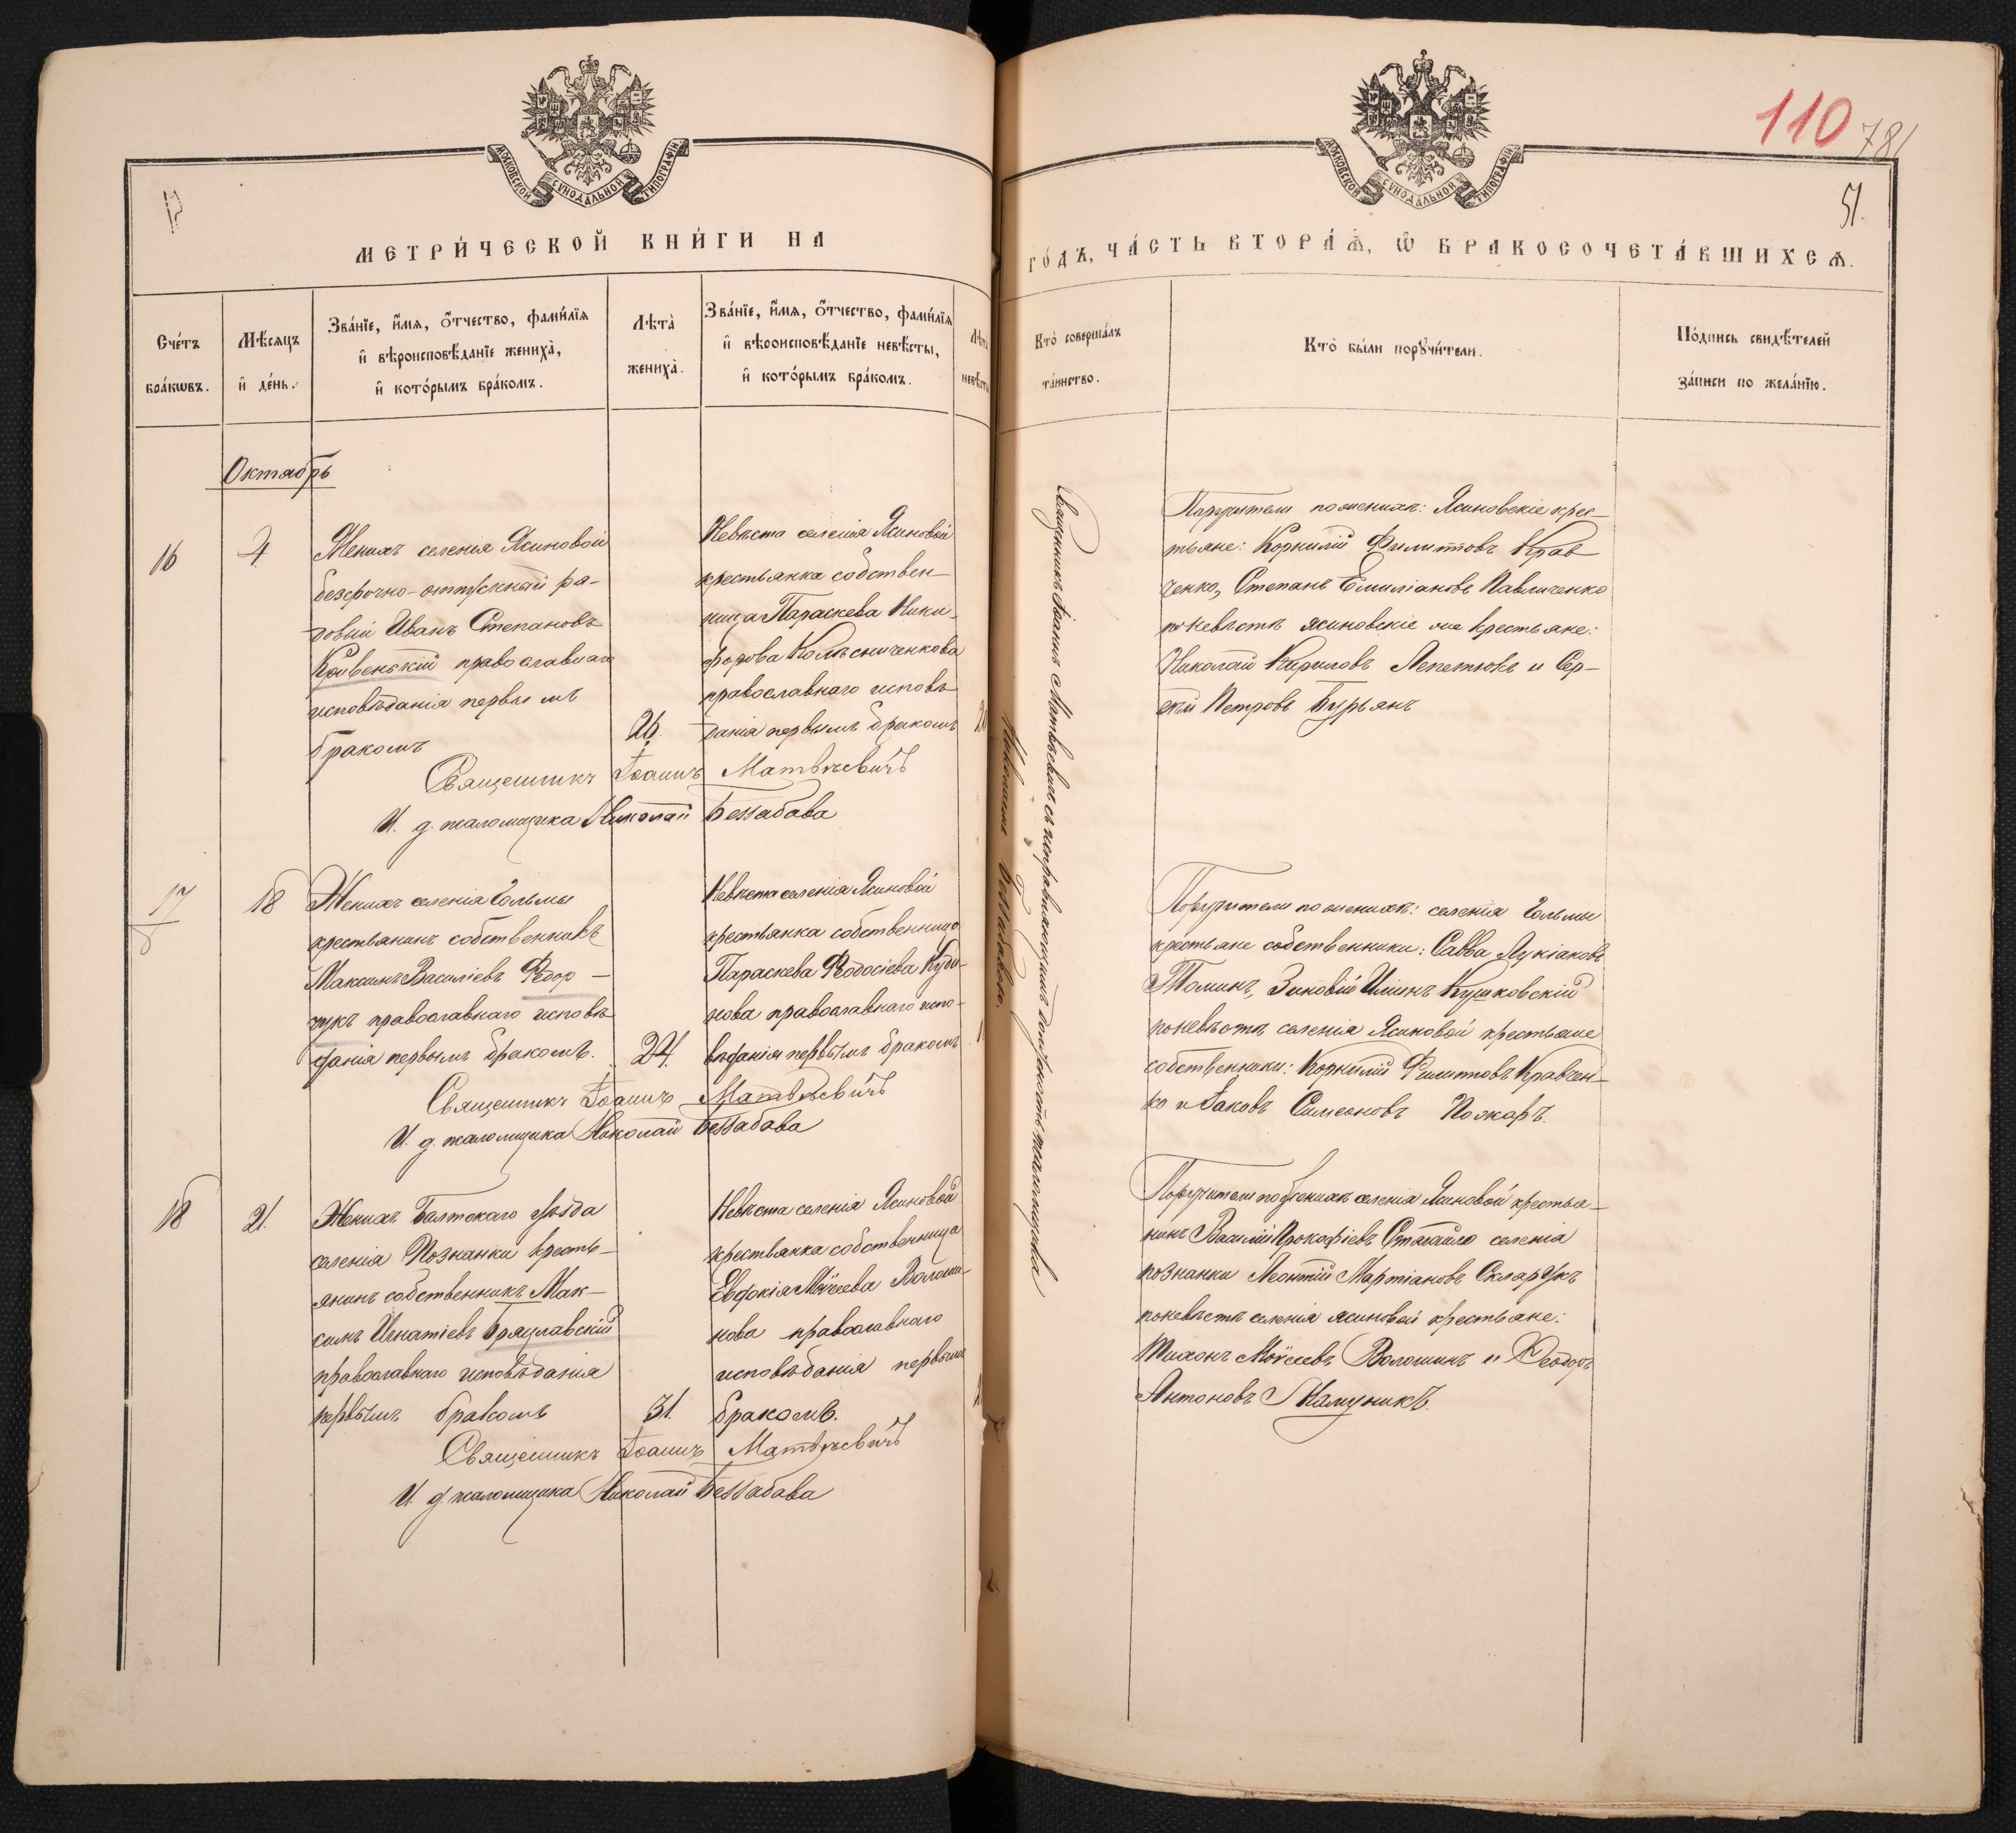 МОСКОВСКОЙ СУНОДАЛЬНОЙ ТИПОГРАФІИ
МЕТРИ́ЧЕСКОЙ КНИ́ГИ НА
Сче́тъ бра́кωвъ.
Мѣ́сяцъ и҆ де́нь.
Зва́нїе, и҆́мѧ, ѻ҆́тчество, фами́лїѧ
и҆ вѣроисповѣ́данїе жениха̀,
и҆ кото́рымъ бра́комъ.
Лѣта̀ жениха̀.
Зва́нїе, и҆́мѧ, ѻ҆́тчество, фами́лїѧ
и҆ вѣроисповѣ́данїе невѣ́сты,
и҆ кото́рымъ бра́комъ.
Лѣта невѣсты
Октябрь
16
4
Женихъ селенія Ясиновой
безсрочно-отпускный ря-
довый Иванъ Степановъ
Кривенькій православнаго
исповѣданія первымъ
бракомъ
26.
Невѣста селенія Ясиновой
крестьянка собствен-
ница Параскева Ники-
форова Колѣсниченкова
православнаго исповѣ-
данія первымъ бракомъ
Священникъ Іоаннъ Матѳѣевичъ
И. д. псаломщика Николай Беззабава
17
18
Женихъ селенія Гольмы
крестьянинъ собственникъ
Максимъ Василіевъ Ѳедор-
чукъ православнаго исповѣ-
данія первымъ бракомъ.
24.
Невѣста селенія Ясиновой
крестьянка собственница
Параскева Ѳеодосіева Куди-
нова православнаго испо-
вѣданія первымъ бракомъ
Священникъ Іоаннъ Матѳѣевичъ
И. д. псаломщика Николай Беззабава
18
21.
Женихъ Балтскаго уѣзда
селенія Познанки кресть-
янинъ собственникъ Мак-
симъ Игнатіевъ Брацлавскій
православнаго исповѣданія
первымъ бракомъ
31.
Невѣста селенія Ясиновой
крестьянка собственница
Евдокія Моѵсеева Волоши-
нова православнаго
исповѣданія первымъ
бракомъ.
Священникъ Іоаннъ Матѳѣевичъ
И. д. псаломщика Николай Беззабава
110
781
51.
МОСКОВСКОЙ СУНОДАЛЬНОЙ ТИПОГРАФІИ
ГО́ДЪ, ЧА́СТЬ ВТОРА́Ѧ, Ѽ БРАКОСОЧЕТА́ВШИХСѦ.
Кто̀ соверша́лъ та́инство.
Кто̀ бы́ли порꙋчи́тели.
По́дпись свидѣ́телей
за́писи по жела́нїю.
Священникъ Іоаннъ Матѳѣевичъ съ исправляющимъ должность псаломщика
Николаемъ Беззабавою.
Поручители по женихѣ: Ясиновскіе крес-
тьяне: Корнилій Филипповъ Крав
ченко, Степанъ Емиліановъ Павличенко
по невѣстѣ ясиновскіе же крестьяне:
Николай Кириловъ Лепетюкъ и Сер-
гѣй Петровъ Бурьянъ
Поручители по женихѣ: селенія Гольмы
крестьяне собственники: Савва Лукіановъ
Томинъ, Зиновій Ильинъ Кушковскій
по невѣстѣ селенія Ясиновой крестьяне
собственники: Корнилій Филипповъ Кравчен-
ко и Іаковъ Симеоновъ Пожаръ.
Поручители по женихѣ селенія Ясиновой крестья-
нинъ Василій Прокофіевъ селенія
познанки Леонтій Мартіановъ Скларукъ
по невѣстѣ селенія ясиновой крестьяне:
Тихонъ Моѵсеевъ Волошинъ и Ѳеодоръ
Антоновъ